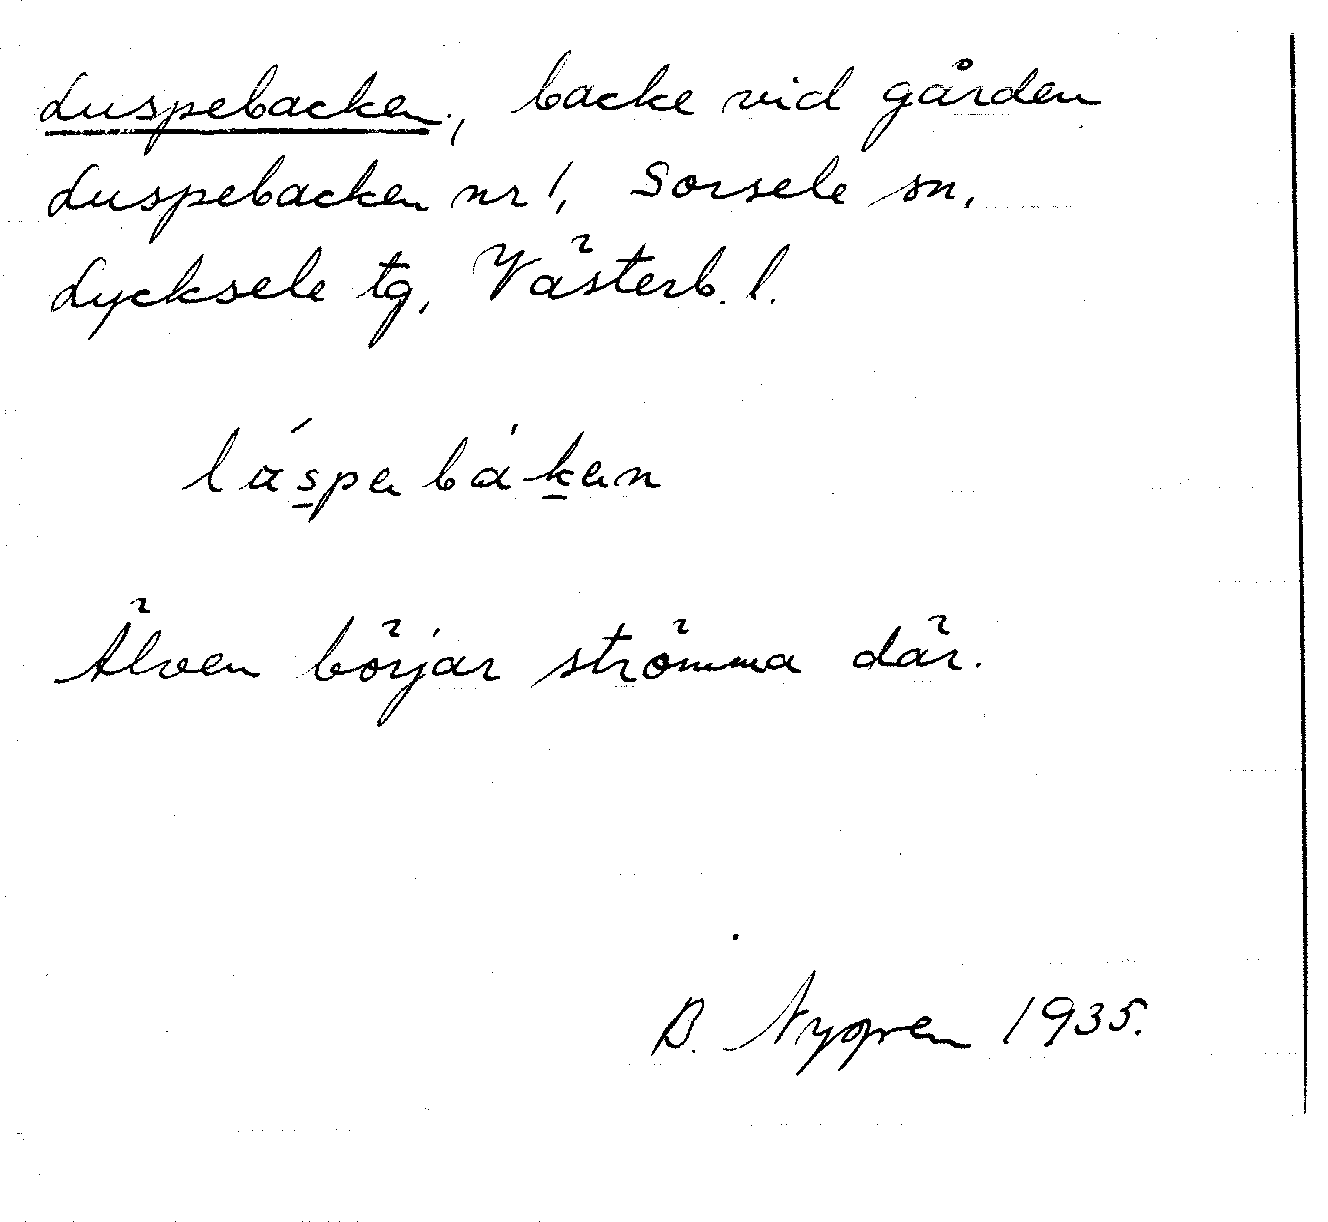 Luspebacken, backe vid gården
Luspebacken nr 1, Sorsele sn,
Lycksele tg, Västerb. l.
láspebákən
Älven börjar strömma där.
B. Nygren 1935.